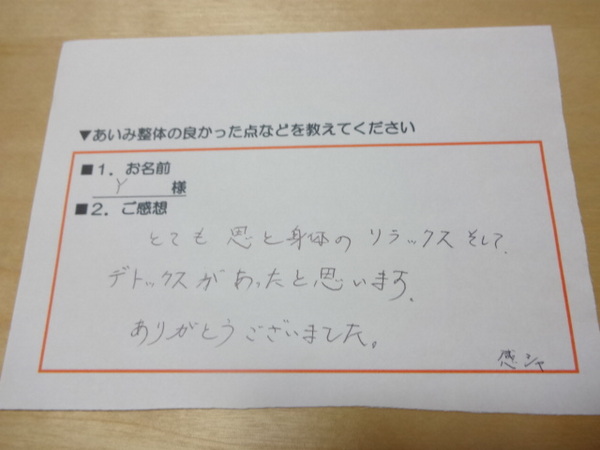 ▼あいみ整体の良かった点などを教えてください
■1．お名前
Y 様
■2．ご感想
とても 思と身体の リラックス そして、
デトックスが あったと思います。
ありがとうございました。
感シャ